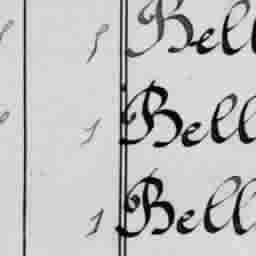 Bell
1 Bell
1 Bell